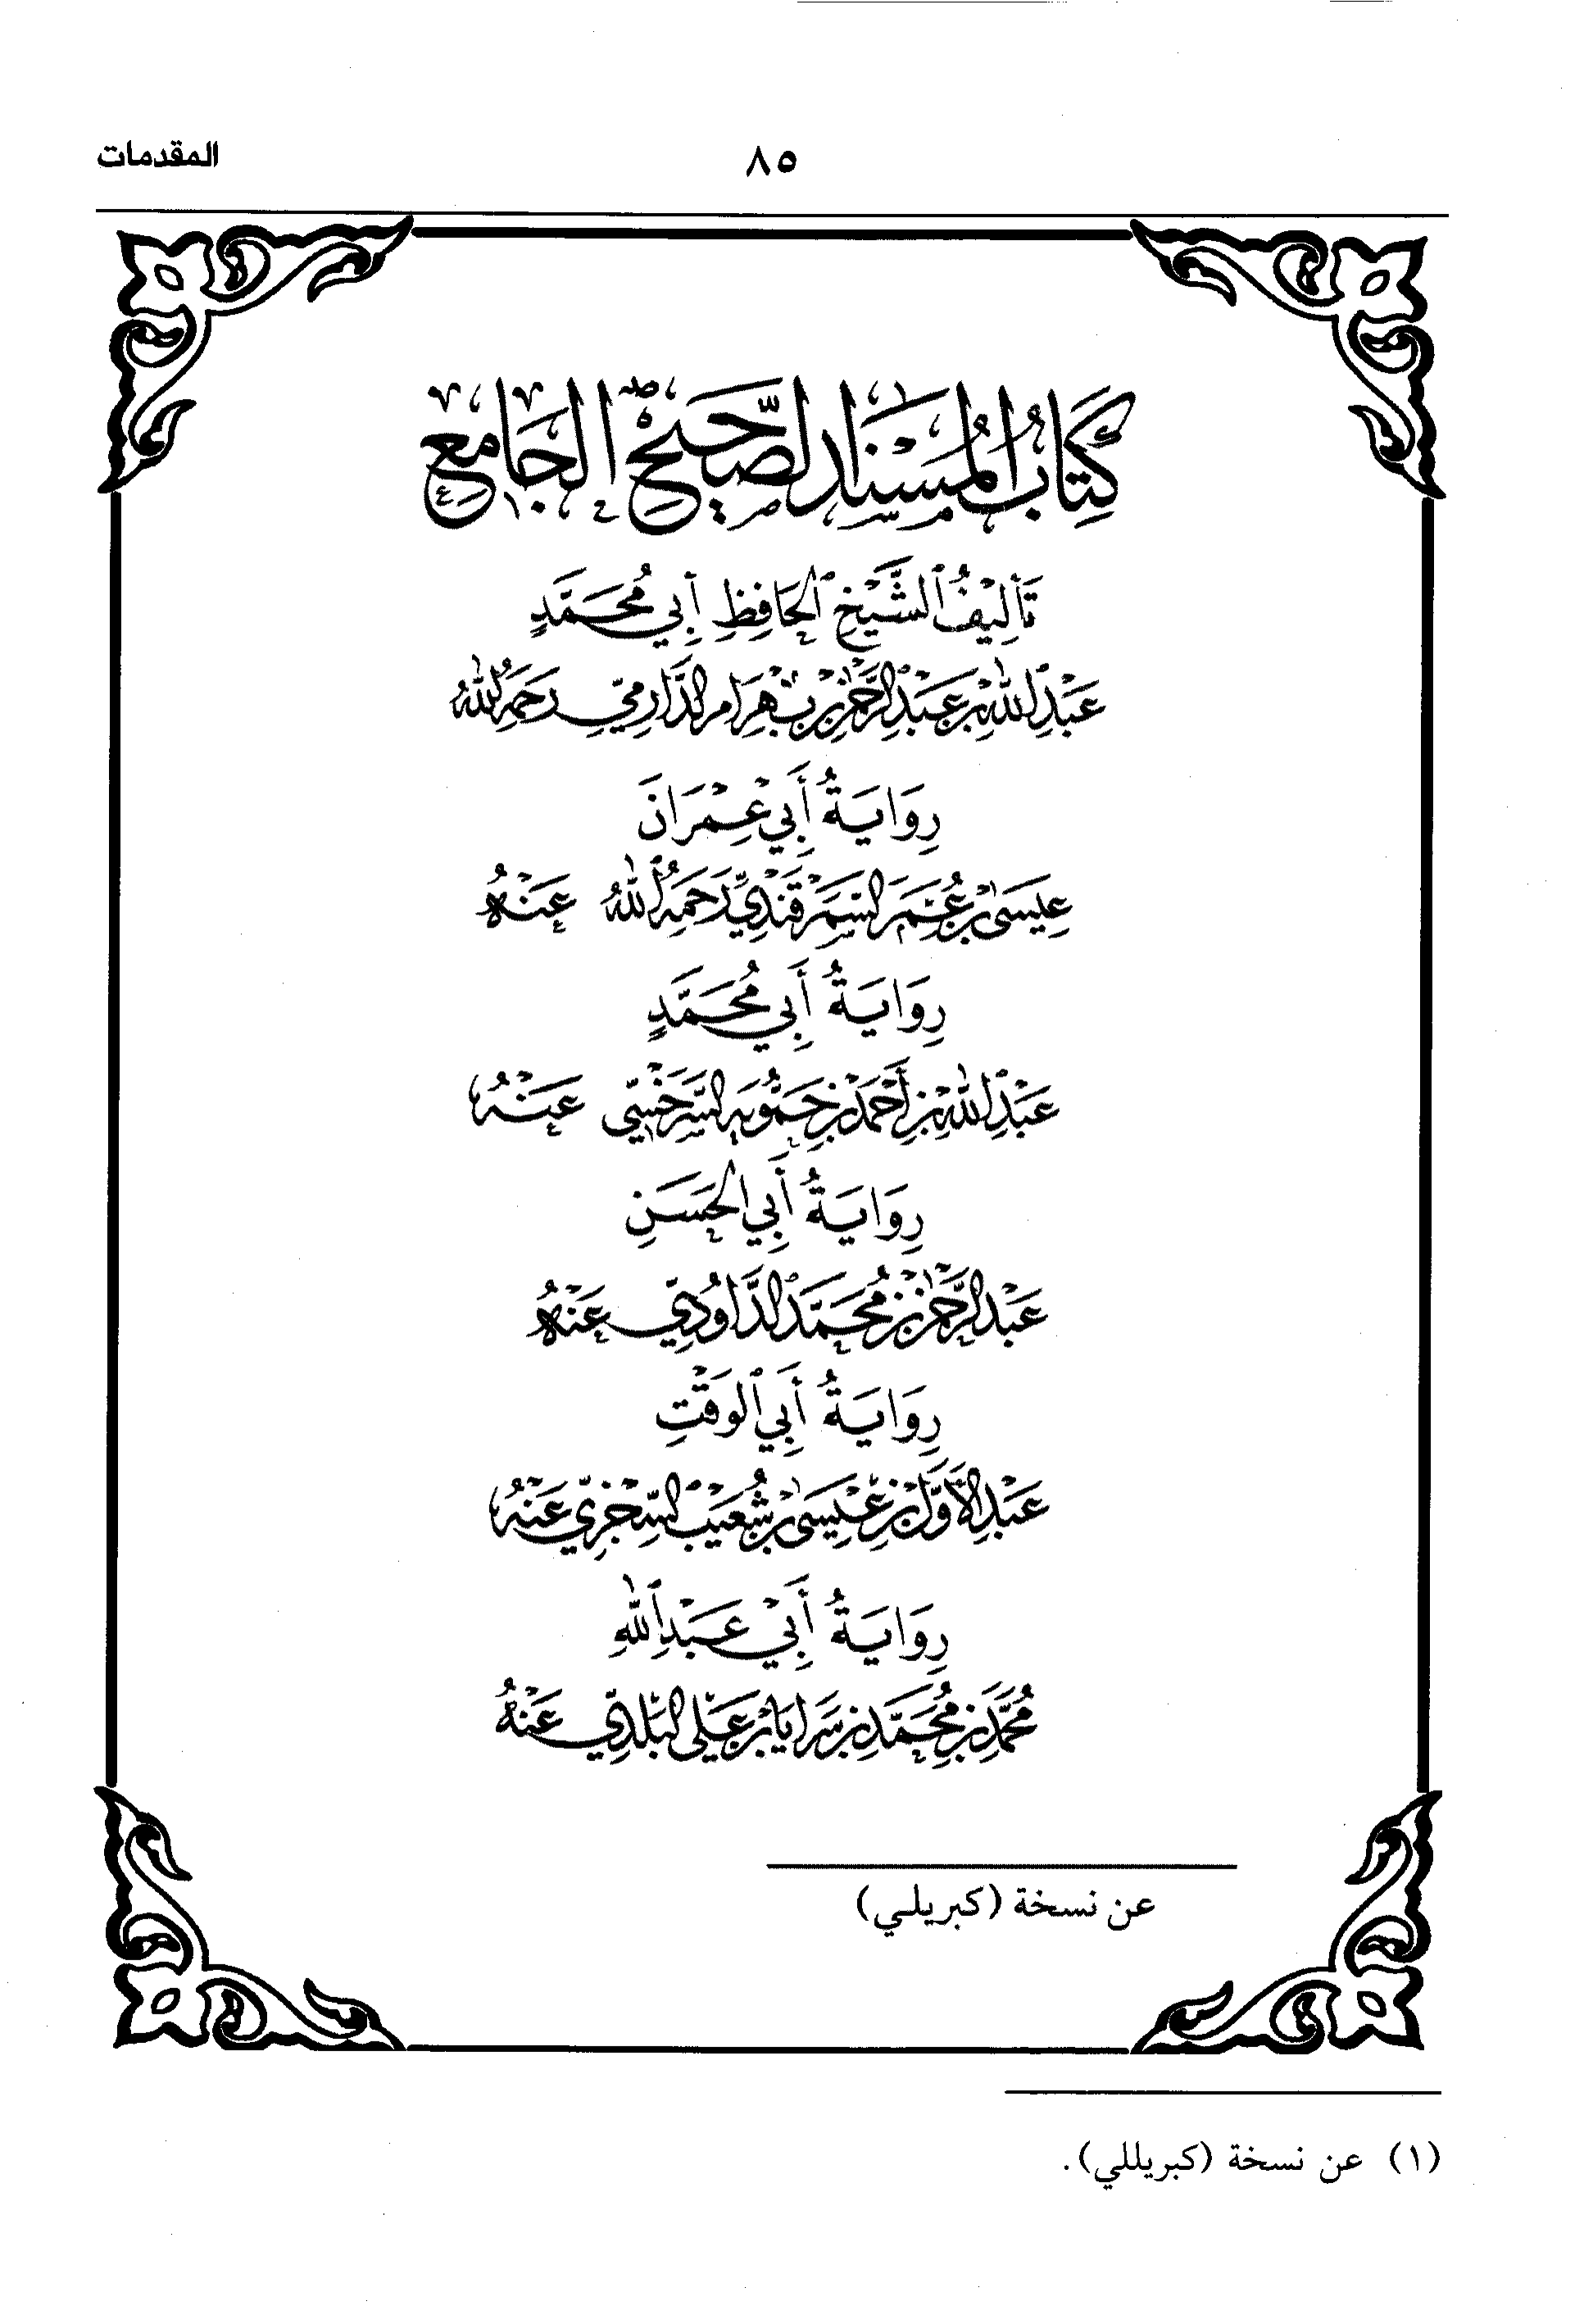 المقدمات
٨٥
كِتَابُ الْمُسْنَد الصَّحِيحِ الْجَامِعِ
تَأْلِيْفُ الشَّيْخِ الْحَافِظِ أَبِي مُحَمَّدٍ
عَبْدِ اللهِ بْنِ عَبْدِ الرَّحْمٰنِ بْنِ بَهْرَامِ الدَّارِمِيِّ رَحِمَهُ اللهُ
رِوَايَةُ أَبِيْ عِمْرَانَ
عِيسَى بْنِ عُمَرَ السَّمَرْقَنْدِيِّ رَحِمَهُ اللهُ عَنْهُ
رِوَايَةُ أَبِي مُحَمَّدٍ
عَبْدِ اللهِ بْنِ أَحْمَدَ بْنِ حَمُّويَه السَّرَخْسِيِّ عَنْهُ
رِوَايَةُ أَبِي الْحَسَنِ
عَبْدِ الرَّحْمٰنِ بْنِ مُحَمَّدٍ الدَّاوُدِيِّ عَنْهُ
رِوَايَةُ أَبِي الْوَقْتِ
عَبْدِ الْأَوَّلِ بْنِ عِيْسَى بْنِ شُعَيْبٍ السِّجْزِيِّ عَنْهُ
رِوَايَةُ أَبِيْ عَبْدِ اللهِ
مُحَمَّدِ بْنِ مُحَمَّدِ بْنِ سَرَايَا بْنِ عَلِي الْبَلَدِيِّ عَنْهُ
عن نسخة (كبريلي)
(١) عن نسخة (كبريللي).